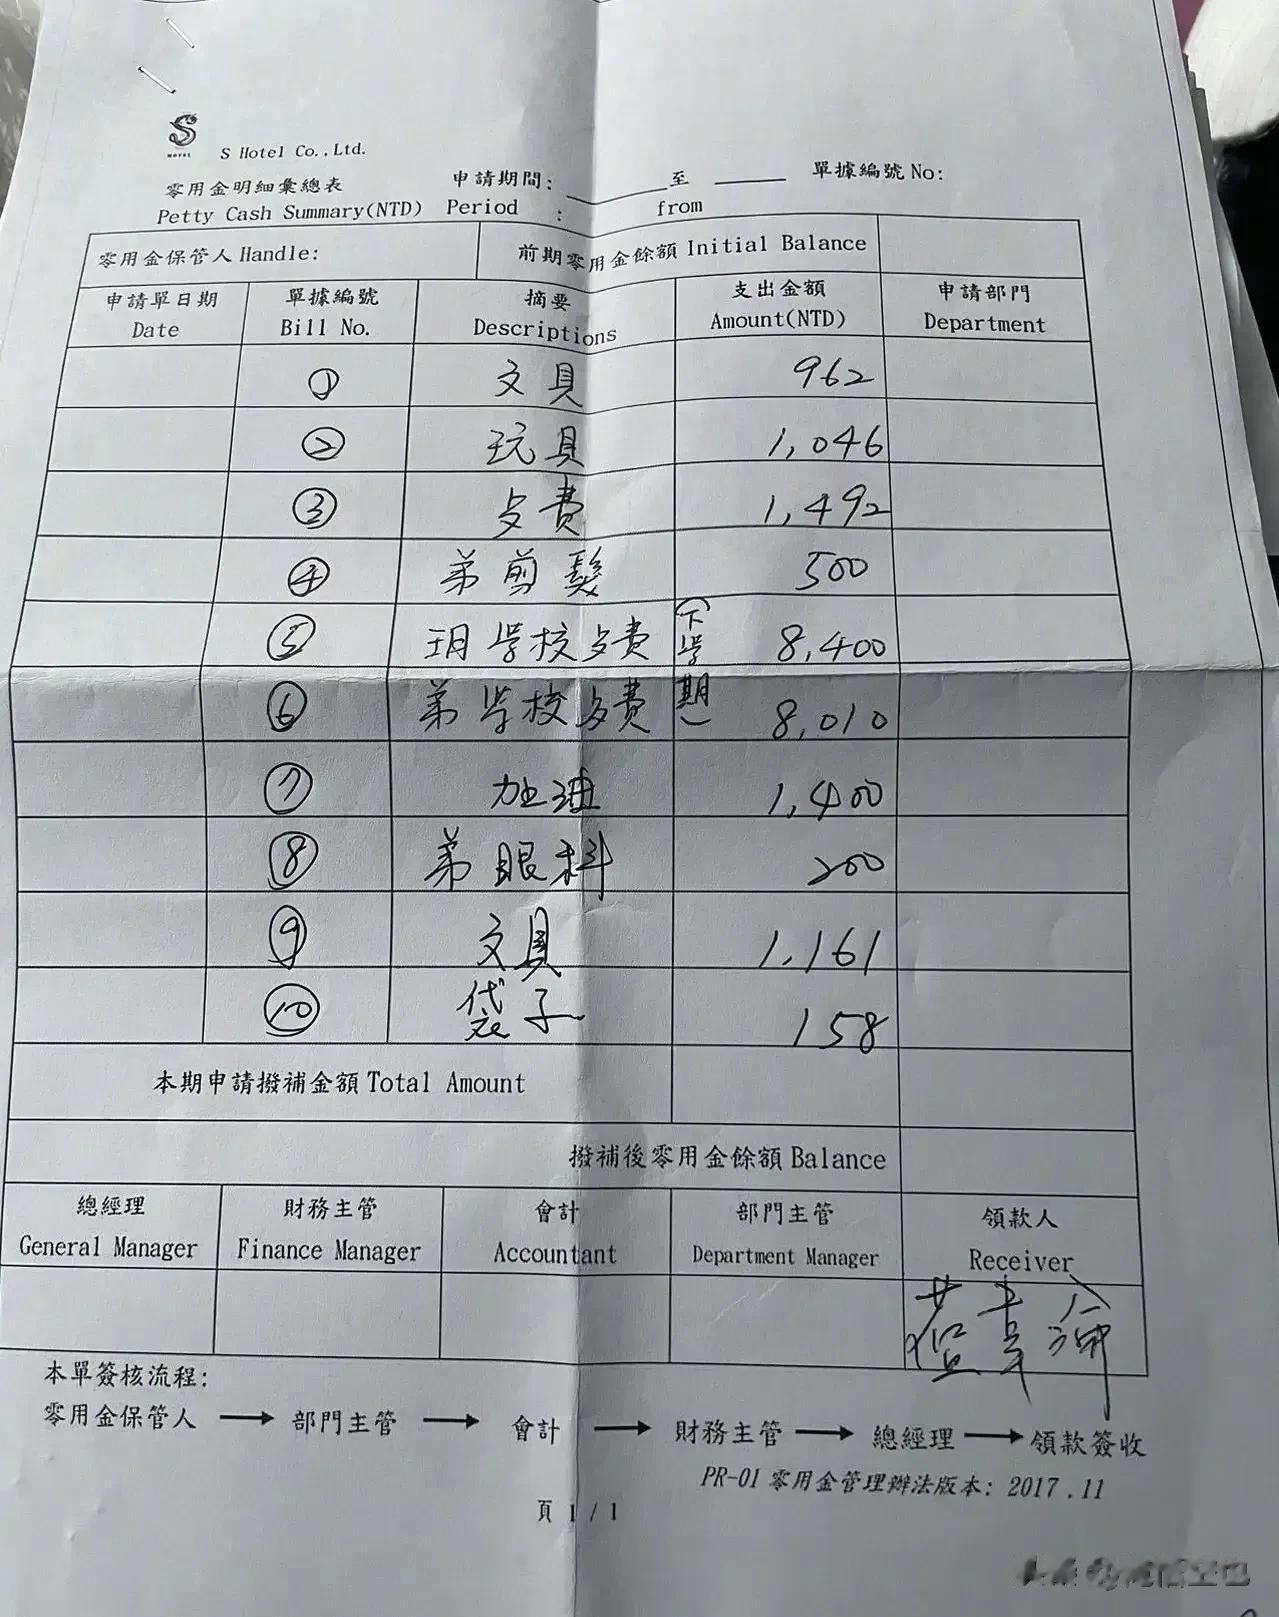 S
HOTEL
S Hotel Co.,Ltd.
零用金明細彙總表 申請期間: 至 單據編號 No:
Petty Cash Summary(NTD) Period : from
零用金保管人 Handle: 前期零用金餘額 Initial Balance
申請單日期 單據編號 摘要 支出金額 申請部門
Date Bill No. Descriptions Amount(NTD) Department
① 文具 962
② 玩具 1,046
③ 歺費 1,492
④ 弟剪髮 500
⑤ 玥學校歺費 (下學期) 8,400
⑥ 弟學校歺費 8,010
⑦ 加油 1,400
⑧ 弟眼科 200
⑨ 文具 1,161
⑩ 袋子 158
本期申請撥補金額 Total Amount
撥補後零用金餘額 Balance
總經理 財務主管 會計 部門主管 領款人
General Manager Finance Manager Accountant Department Manager Receiver
本單簽核流程:
零用金保管人 → 部門主管 → 會計 → 財務主管 → 總經理 → 領款簽收
PR-01 零用金管理辦法版本: 2017.11
頁 1 / 1